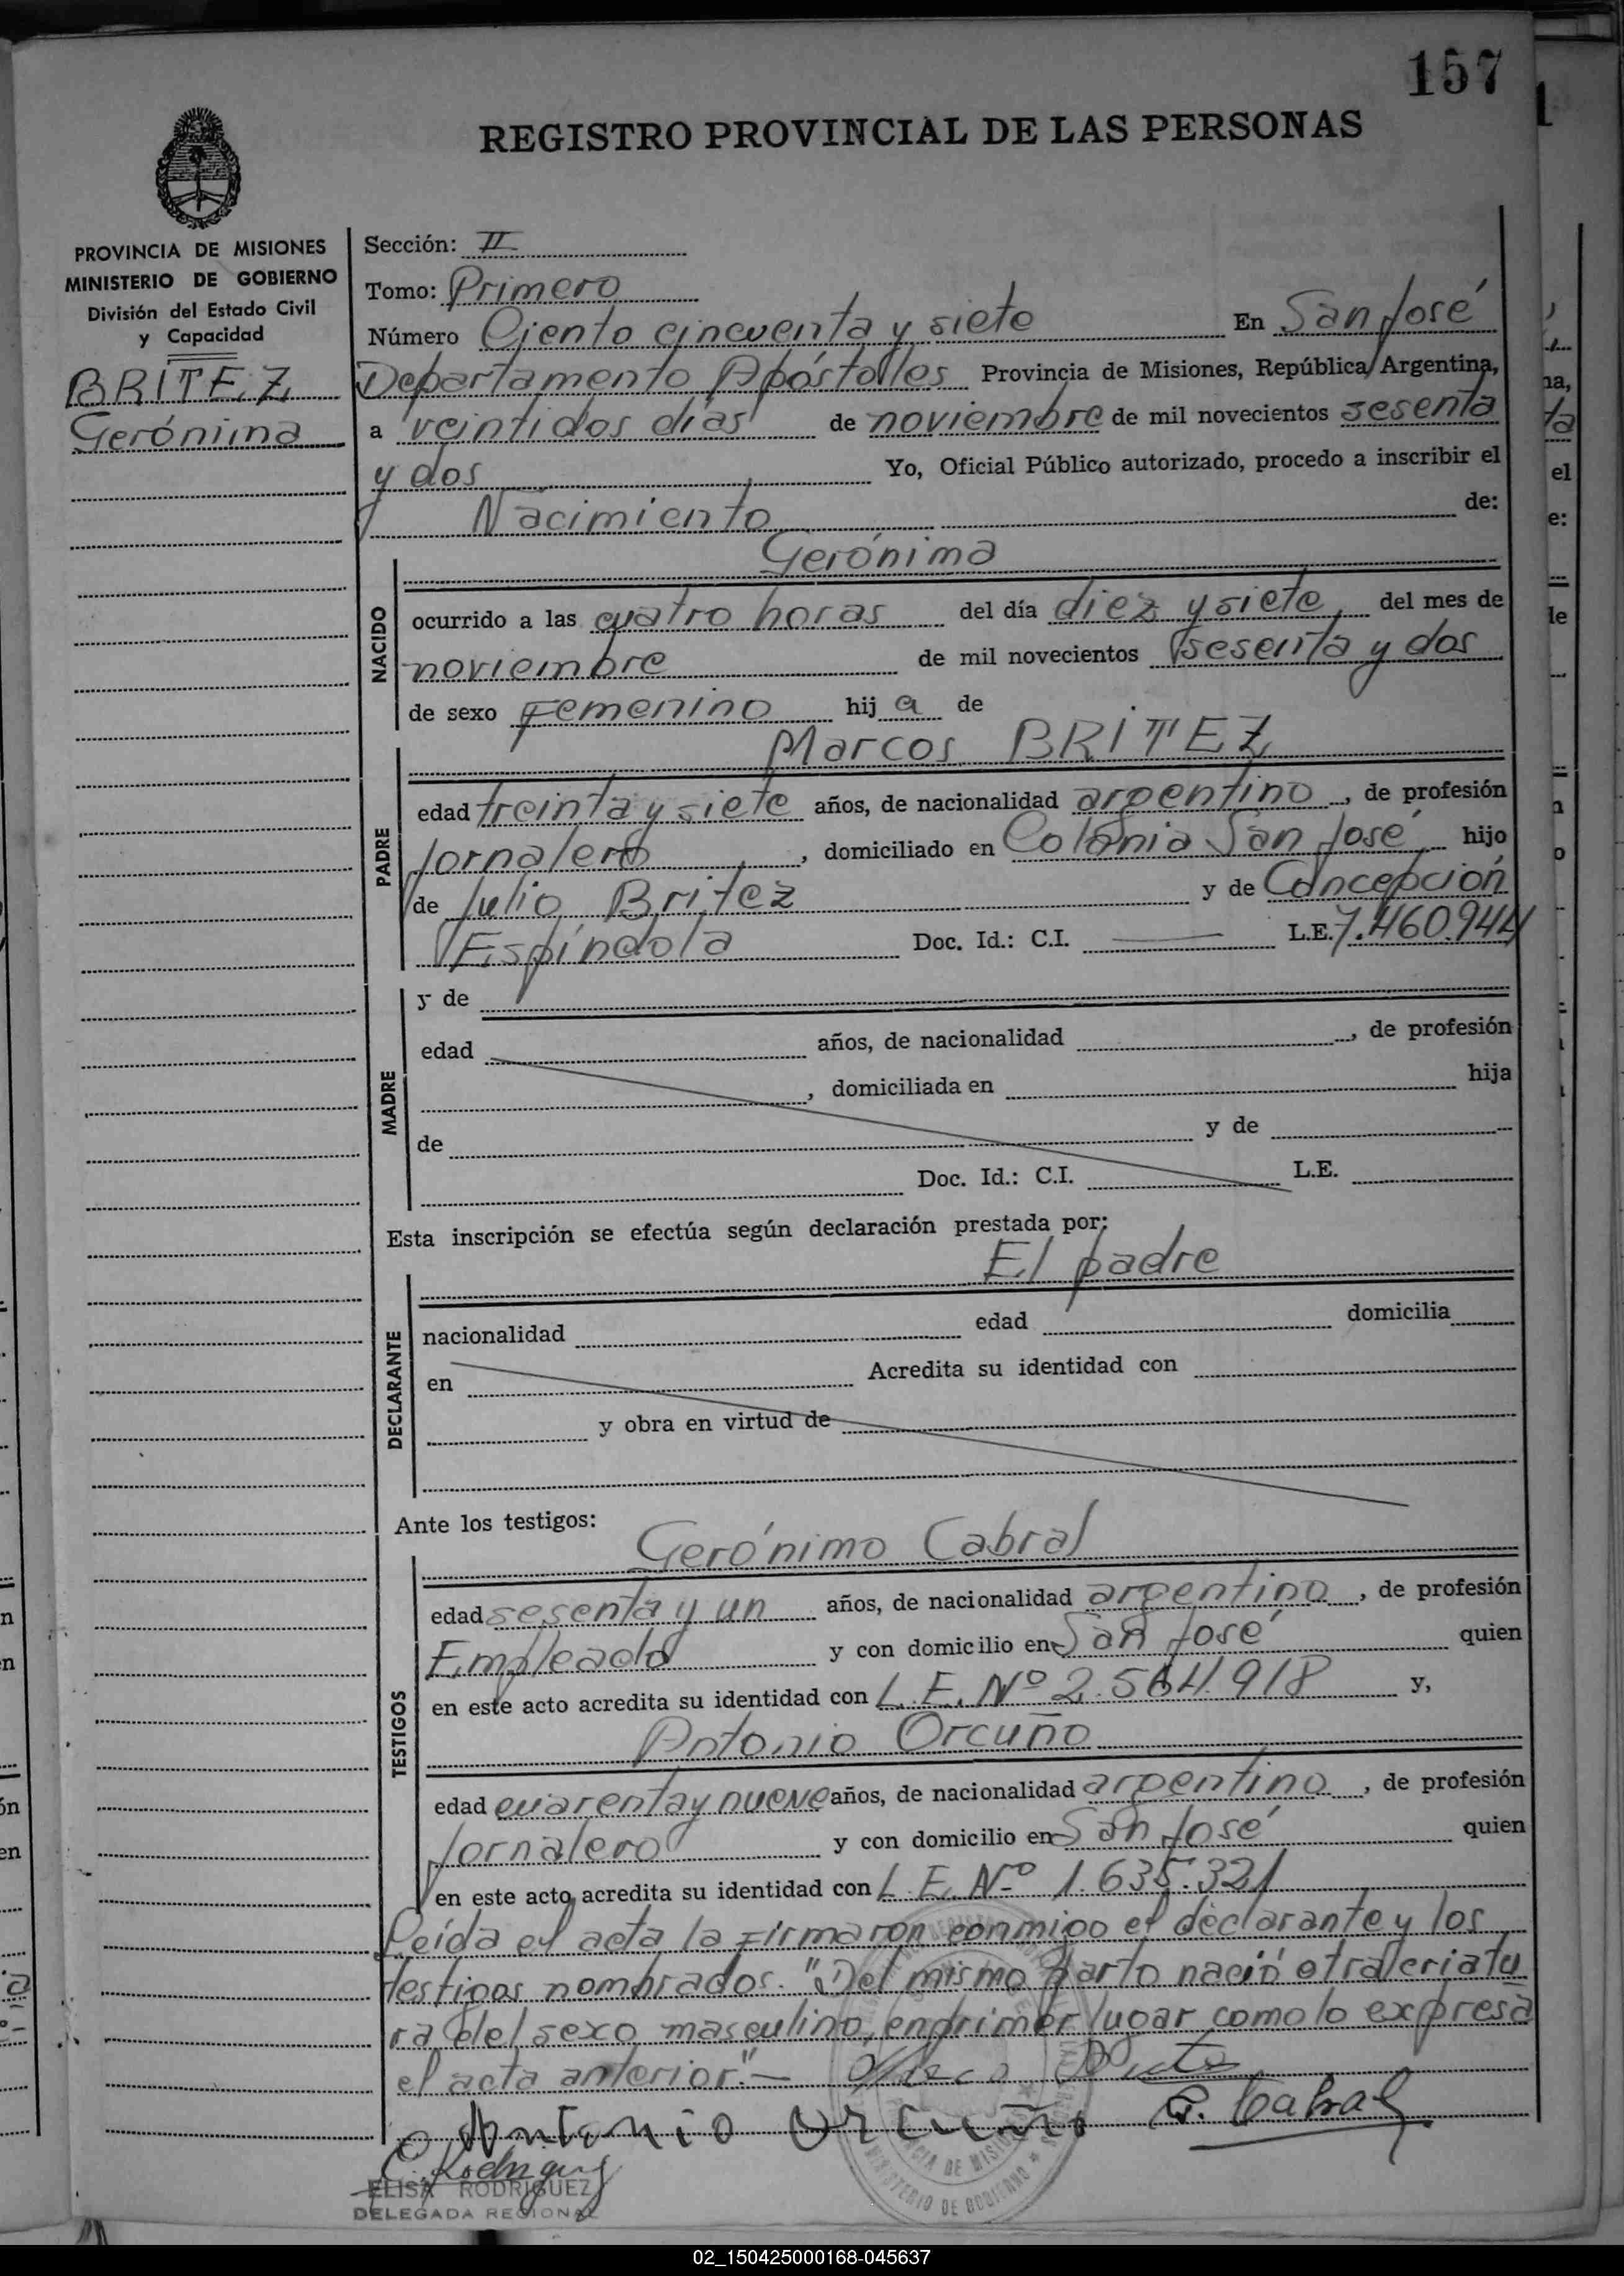 157
REGISTRO PROVINCIAL DE LAS PERSONAS
PROVINCIA DE MISIONES
MINISTERIO DE GOBIERNO
División del Estado Civil
y Capacidad
BRITEZ
Gerónima
Sección: II
Tomo: Primero
Número Ciento cincuenta y siete En San José
Departamento Apóstolles Provincia de Misiones, República Argentina,
a veintidos días de noviembre de mil novecientos sesenta
y dos Yo, Oficial Público autorizado, procedo a inscribir el
Nacimiento de:
Gerónima
NACIDO
ocurrido a las cuatro horas del día diez y siete del mes de
noviembre de mil novecientos sesenta y dos
de sexo Femenino hij a de
Marcos BRITEZ
PADRE
edad treinta y siete años, de nacionalidad argentino, de profesión
Jornalero, domiciliado en Colonia San José hijo
de Julio Britez y de Concepción
Espíndola Doc. Id.: C.I. — L.E. 7.460.944
MADRE
y de
edad años, de nacionalidad , de profesión
, domiciliada en hija
de y de
Doc. Id.: C.I. L.E.
Esta inscripción se efectúa según declaración prestada por:
El padre
DECLARANTE
nacionalidad edad domicilia
en Acredita su identidad con
y obra en virtud de
Ante los testigos:
Gerónimo Cabral
TESTIGOS
edad sesenta y un años, de nacionalidad argentino, de profesión
Empleado y con domicilio en San José quien
en este acto acredita su identidad con L.E. Nº 2.564.918 y,
Antonio Orcuño
edad cuarenta y nueve años, de nacionalidad argentino, de profesión
Jornalero y con domicilio en San José quien
en este acto acredita su identidad con L.E. Nº 1.635.321
Leída el acta la firmaron conmigo el declarante y los
testigos nombrados. "Del mismo parto nació otra criatu
ra del sexo masculino, en primer lugar como lo expresa
el acta anterior".—
Antonio Orcuño G. Cabral
E. Rodriguez
ELISA RODRIGUEZ
DELEGADA REGIONAL
MINISTERIO DE GOBIERNO
02_150425000168-045637